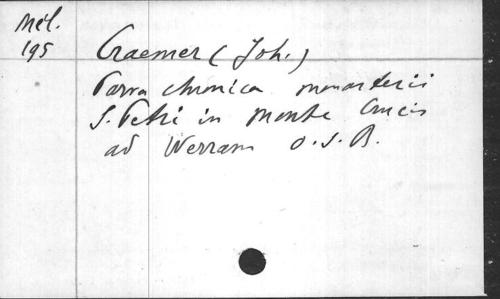 Mél.
195
Craemer (Joh.)
Parva chronica monasterii
S. Petri in Monte Crucis
ad Werram O.S.B.